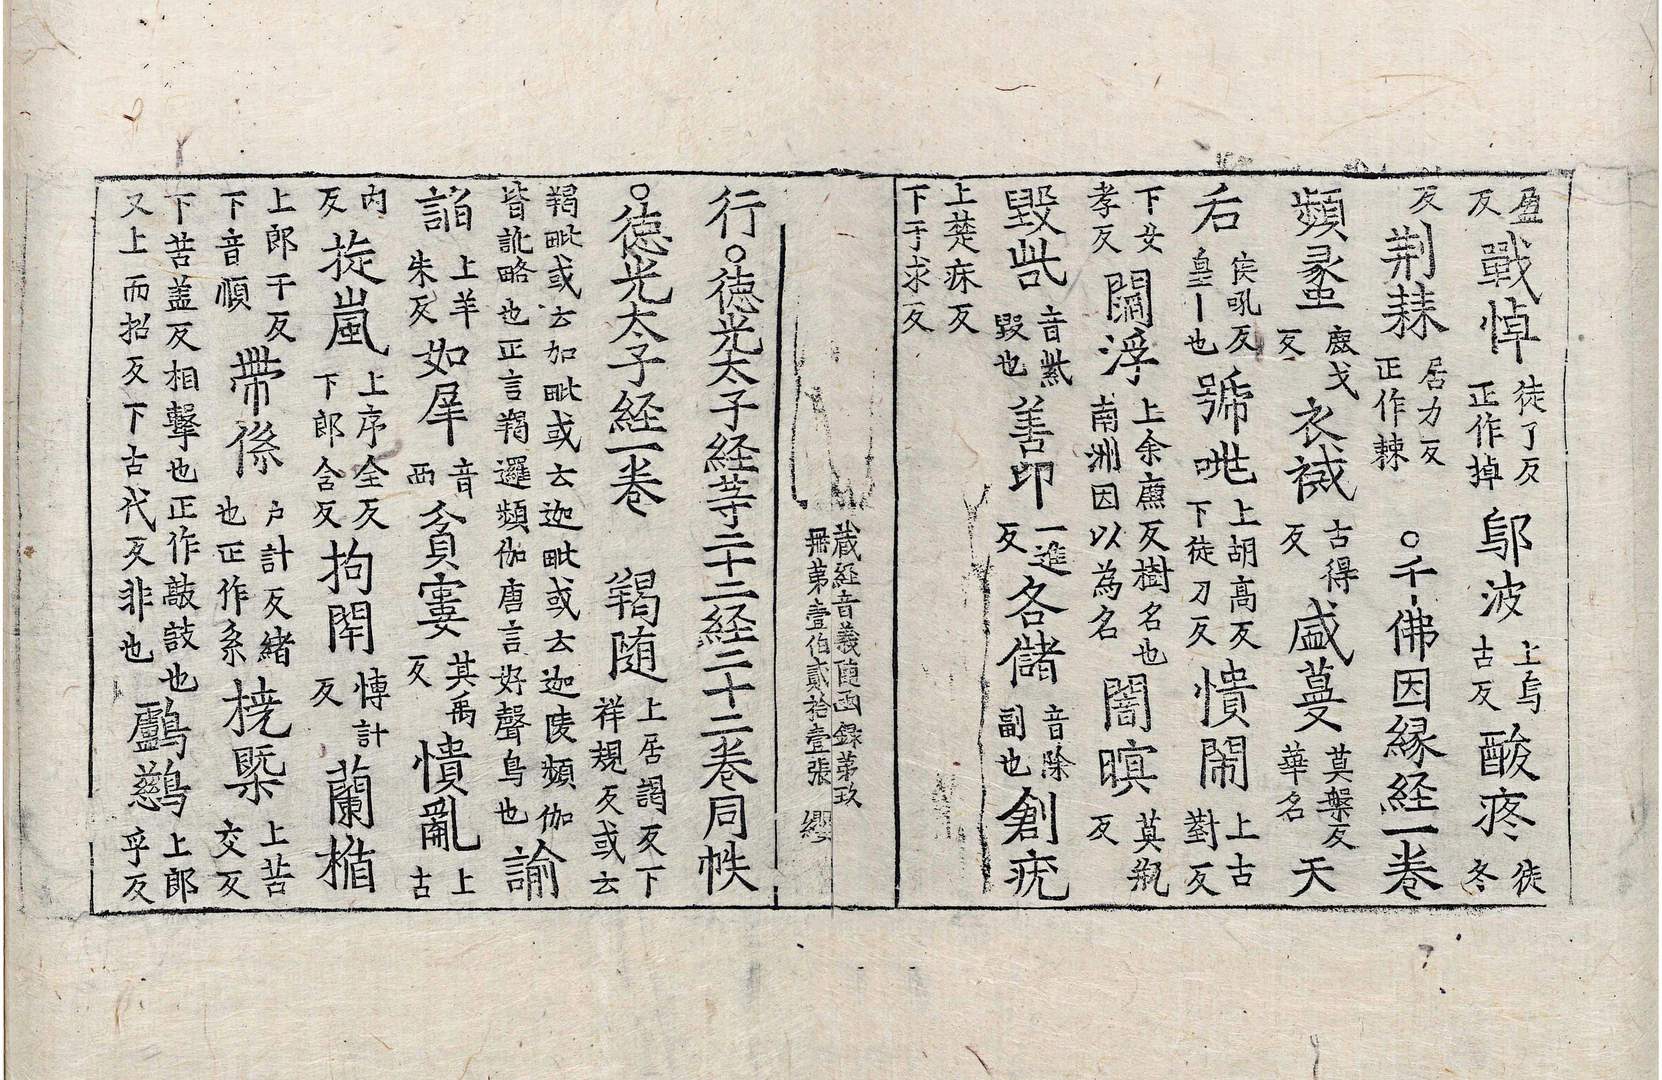 盈反戰悼徒了反正作掉鄔波上烏古反酸疼徒冬
反荆蕀居力反正作棘○千佛因縁經一卷
頻蠡鹿戈反衣祴古得反盛蔓莫槃反華名天
右侯吼反皇丨也號咷上胡高反下徒刀反憒閙上古對反
下女孝反閻浮上余廉反樹名也南洲因以為名闇暝莫瓶反
毀呰音紫毀也善印一進反各儲音除副也創疣
上楚疾反下于求反
蔵經音義随函録弟玖
冊弟壹伯貳拾壹張 纓
行○徳光太子經等二十二經二十二巻同帙
○徳光太子經一巻 羯随上居謁反下祥規反或云
羯毗或云加毗或云迦毗或云迦陵頻伽皆訛略也正言羯邏頻伽唐言好聲鳥也諭
諂上羊朱反如犀音西貧寠其禹反憒亂上古
內反旋嵐上序全反下郎含反拘閇博計反蘭楯
上郎干反下音順帶係户計反緒也正作系桡㮣上苦交反
下苦盖反相擊也正作敲㪣也鸕鷀上郎乎反
又上而招反下古代反非也